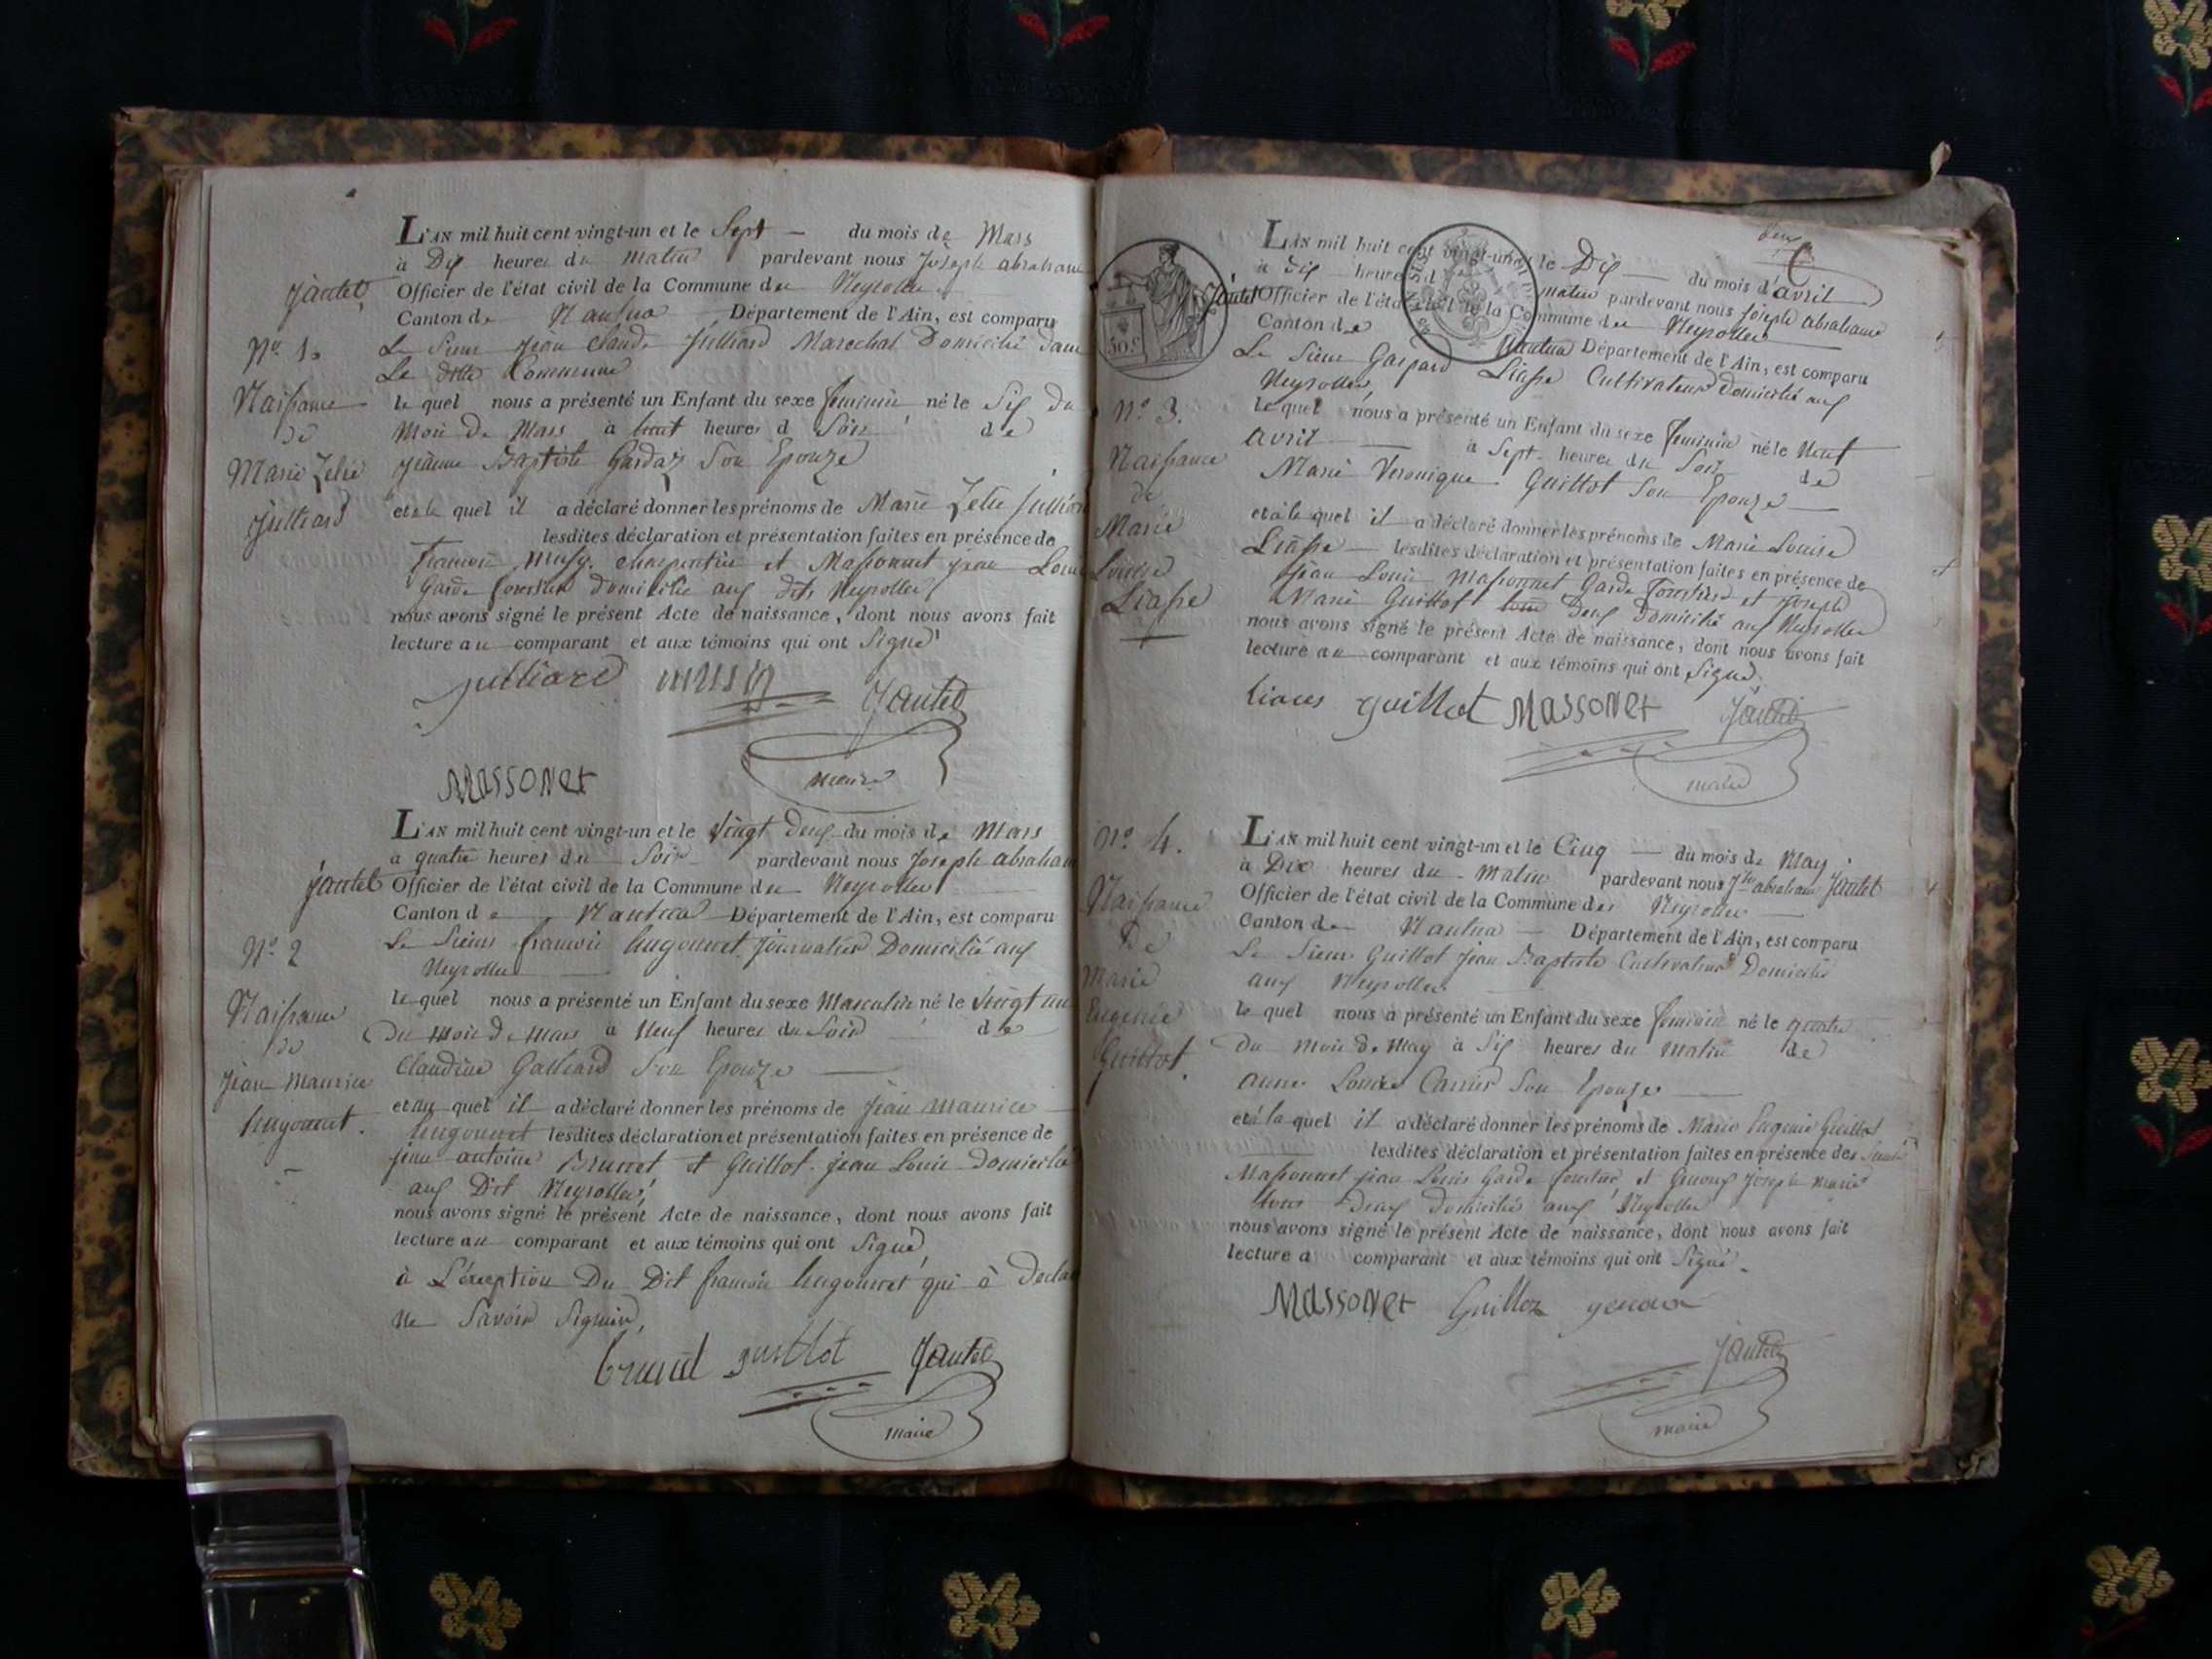 L'AN mil huit cent vingt-un et le Sept du mois de Mars
à Dix heures du matin pardevant nous Joseph abraham
jantet Officier de l'état civil de la Commune des Neyrolles
Canton de Nantua Département de l'Ain, est comparu
Le Sieur Jean Claude Julliard Marechal Domicilié dans
La ditte Commune
le quel nous a présenté un Enfant du sexe feminin né le Six du
Mois de Mars à huit heures d Soir de
jeanne Baptiste Gardaz Son Epouze
et à le quel il a déclaré donner les prénoms de Marie Zelie Julliard
lesdites déclaration et présentation faites en présence de
francois musy charpentier et Massonnet jean Louis
Garde forestier domiciliés aux dits Neyrolles
nous avons signé le présent Acte de naissance, dont nous avons fait
lecture au comparant et aux témoins qui ont Signé
Nº 1.
Naissance
de
Marie Zelie
Julliard
julliard musy jantet
maire
Massonet
L'AN mil huit cent vingt-un et le Vingt deux du mois de Mars
à quatre heures du Soir pardevant nous Joseph abraham
jantet Officier de l'état civil de la Commune des Neyrolles
Canton de Nantua Département de l'Ain, est comparu
Le Sieur francois hugonnet journalier Domicilié aux
Neyrolles
le quel nous a présenté un Enfant du sexe Masculin né le Vingt un
Du mois de mars à Neuf heures du Soir de
Claudine Galliard Son Epouze
et au quel il a déclaré donner les prénoms de jean maurice
hugonnet lesdites déclaration et présentation faites en présence de
jean antoine Brunet et Guillot jean Louis domiciliés
aux Dit Neyrolles
nous avons signé le présent Acte de naissance, dont nous avons fait
lecture au comparant et aux témoins qui ont Signé
à L'éxception Du Dit francois hugonnet qui à Declaré
ne Savoir Signer,
Nº 2
Naissance
de
jean maurice
hugonnet.
brunet guillot jantet
maire
deux
L'AN mil huit cent vingt-un et le Dix du mois d'avril
à dix heures d matin pardevant nous joseph abraham
jantet Officier de l'état civil de la Commune des Neyrolles
Canton de Nantua Département de l'Ain, est comparu
Le Sieur Gaspard Liasse Cultivateur domicilié aux
Neyrolles
le quel nous a présenté un Enfant du sexe feminin né le Neuf
avril à Sept heures du Soir de
Marie Veronique Guillot Son Epouze
et à le quel il a déclaré donner les prénoms de Marie Louise
Liasse lesdites déclaration et présentation faites en présence de
jean Louis Massonnet Garde forestier et joseph
Marie Guillot tous Deux Domicilié aux Neyrolles
nous avons signé le présent Acte de naissance, dont nous avons fait
lecture au comparant et aux témoins qui ont Signé.
50 c
Nº 3.
Naissance
de
Marie
Louise
Liasse
guillot Massonet jantet
maire
L'AN mil huit cent vingt-un et le Cinq du mois de May
à Dix heures du matin pardevant nous jph abraham jantet
Officier de l'état civil de la Commune des Neyrolles
Canton de Nantua Département de l'Ain, est comparu
Le Sieur Guillot jean Baptiste Cultivateur Domicilié
aux Neyrolles
le quel nous a présenté un Enfant du sexe feminin né le quatre
du mois de may à Six heures du matin de
anne Louise Carrier Son Epouse
et à la quel il a déclaré donner les prénoms de Marie Eugenie Guillot
lesdites déclaration et présentation faites en présence des Sieurs
Massonnet jean Louis Garde forestier et Genoux Joseph Marie
tous Deux domiciliés aux Neyrolles
nous avons signé le présent Acte de naissance, dont nous avons fait
lecture a comparant et aux témoins qui ont Signé.
Nº 4.
Naissance
de
Marie
Eugenie
Guillot.
Massonet Guillot genoux
jantet
maire